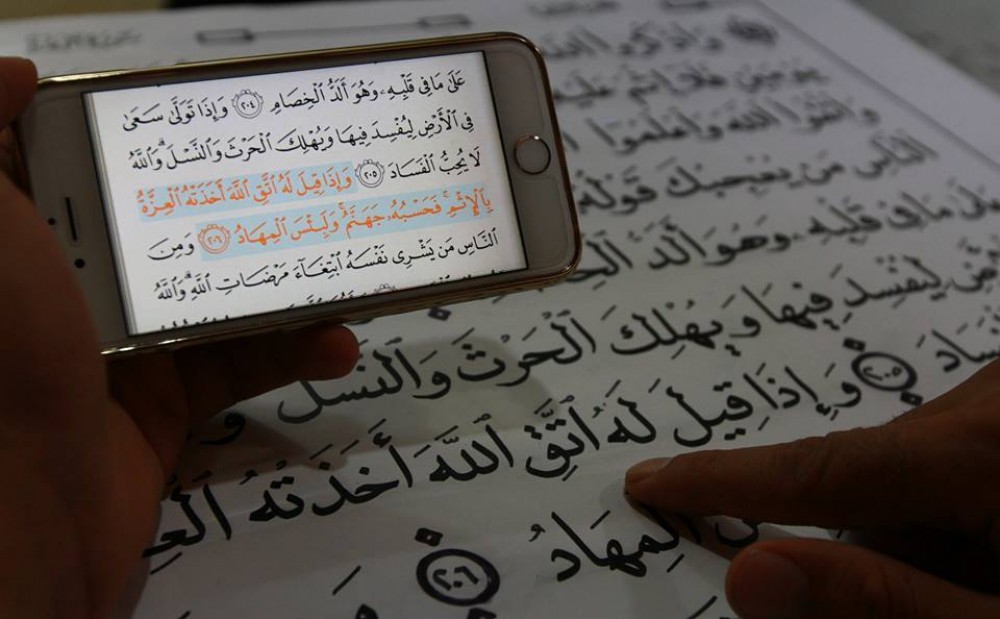 عَلَىٰ مَا فِي قَلْبِهِۦ وَهُوَ أَلَدُّ ٱلْخِصَامِ ٢٠٤ وَإِذَا تَوَلَّىٰ سَعَىٰ
فِي ٱلْأَرْضِ لِيُفْسِدَ فِيهَا وَيُهْلِكَ ٱلْحَرْثَ وَٱلنَّسْلَ ۗ وَٱللَّهُ
لَا يُحِبُّ ٱلْفَسَادَ ٢٠٥ وَإِذَا قِيلَ لَهُ ٱتَّقِ ٱللَّهَ أَخَذَتْهُ ٱلْعِزَّةُ
بِٱلْإِثْمِ ۚ فَحَسْبُهُۥ جَهَنَّمُ ۚ وَلَبِئْسَ ٱلْمِهَادُ ٢٠٦ وَمِنَ
ٱلنَّاسِ مَن يَشْرِي نَفْسَهُ ٱبْتِغَآءَ مَرْضَاتِ ٱللَّهِ ۗ وَٱللَّهُ
وَٱذْكُرُوا۟
يَوْمَيْنِ فَلَآ إِثْمَ عَلَيْهِ
وَٱتَّقُوا۟ ٱللَّهَ وَٱعْلَمُوٓا۟
ٱلنَّاسِ مَن يُعْجِبُكَ قَوْلُهُۥ
عَلَىٰ مَا فِي قَلْبِهِۦ وَهُوَ أَلَدُّ
لِيُفْسِدَ فِيهَا وَيُهْلِكَ ٱلْحَرْثَ وَٱلنَّسْلَ
٢٠٥ وَإِذَا قِيلَ لَهُ ٱتَّقِ ٱللَّهَ أَخَذَتْهُ
ٱلْمِهَادُ ٢٠٦